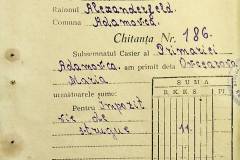 Raionul Alexanderfeld.
Comuna Adamovca.
Chitanța Nr. 186.
Subsemnatul Casier al Primariei
Adamovca. am primit dela Ovecearova
Maria
următoarele sume:
Pentru Impozit
vie de
strugue
SUMA
R.K.K.S.
11.